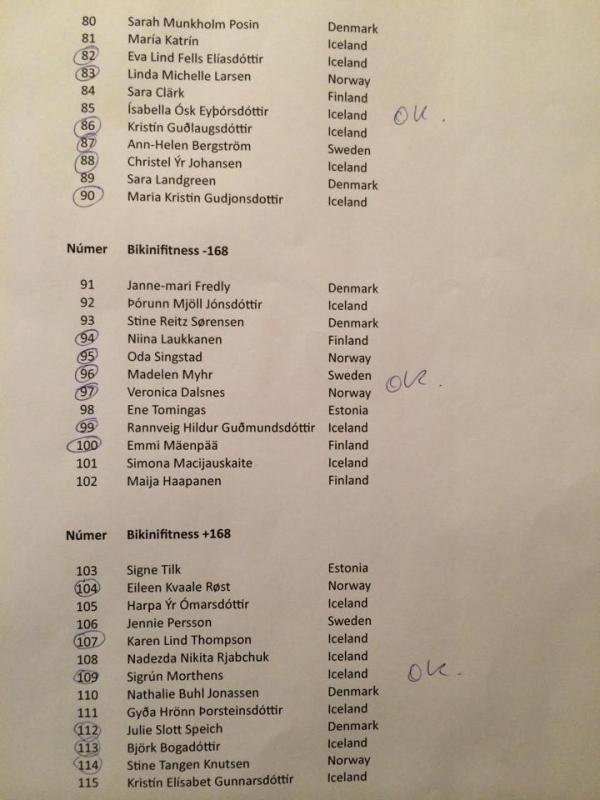 80 Sarah Munkholm Posin Denmark
81 María Katrín Iceland
82 Eva Lind Fells Elíasdóttir Iceland
83 Linda Michelle Larsen Norway
84 Sara Clärk Finland
85 Ísabella Ósk Eyþórsdóttir Iceland OK.
86 Kristín Guðlaugsdóttir Iceland
87 Ann-Helen Bergström Sweden
88 Christel Ýr Johansen Iceland
89 Sara Landgreen Denmark
90 Maria Kristin Gudjonsdottir Iceland
Númer Bikinifitness -168
91 Janne-mari Fredly Denmark
92 Þórunn Mjöll Jónsdóttir Iceland
93 Stine Reitz Sørensen Denmark
94 Niina Laukkanen Finland
95 Oda Singstad Norway
96 Madelen Myhr Sweden OK.
97 Veronica Dalsnes Norway
98 Ene Tomingas Estonia
99 Rannveig Hildur Guðmundsdóttir Iceland
100 Emmi Mäenpää Finland
101 Simona Macijauskaite Iceland
102 Maija Haapanen Finland
Númer Bikinifitness +168
103 Signe Tilk Estonia
104 Eileen Kvaale Røst Norway
105 Harpa Ýr Ómarsdóttir Iceland
106 Jennie Persson Sweden
107 Karen Lind Thompson Iceland
108 Nadezda Nikita Rjabchuk Iceland
109 Sigrún Morthens Iceland OK.
110 Nathalie Buhl Jonassen Denmark
111 Gyða Hrönn Þorsteinsdóttir Iceland
112 Julie Slott Speich Denmark
113 Björk Bogadóttir Iceland
114 Stine Tangen Knutsen Norway
115 Kristín Elísabet Gunnarsdóttir Iceland